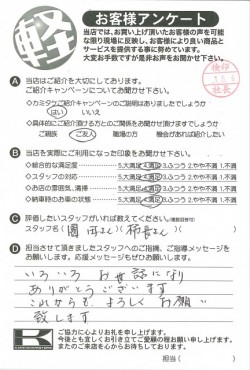 軽
お客様アンケート
当店では、お買い上げ頂いたお客様の声を可能
な限り現場に反映し、お客様により良い商品と
サービスを提供する事に努めています。
大変お手数ですが是非お声をお聞かせ下さい。
検印
社長
A 当店はご紹介を大切にしてあります。
ご紹介キャンペーンについてお聞かせ下さい。
・カミタケご紹介キャンペーンのご説明はありましたでしょうか
はい いいえ
・具体的にご紹介頂ける方とのご関係をお聞かせ頂けますでしょうか
ご親族 ご友人 職場の方 機会があれば紹介したい
B 当店を実際にご利用になった印象をお聞かせ下さい。
・総合的な満足度 5.大満足 4.満足 3.ふつう 2.やや不満 1.不満
・スタッフの対応 5.大満足 4.満足 3.ふつう 2.やや不満 1.不満
・お店の雰囲気、清掃 5.大満足 4.満足 3.ふつう 2.やや不満 1.不満
・納車時のお車の状態 5.大満足 4.満足 3.ふつう 2.やや不満 1.不満
C 評価したいスタッフがいれば教えてください。(複数回答可)
スタッフ名( 園田さん )( さん )
D 担当させて頂きましたスタッフへのご指摘、ご指導メッセージを
お願いします。応援メッセージもぜひお願いします。
いろいろ お世話になり
ありがとうございます
これからも よろしく お願い
致します
K
ご協力に心よりお礼を申し上げます。
今後とも宜しくお引き立てご愛顧の程お願い申し上げます。
またのご来店を心からお待ちしております。
担当( )